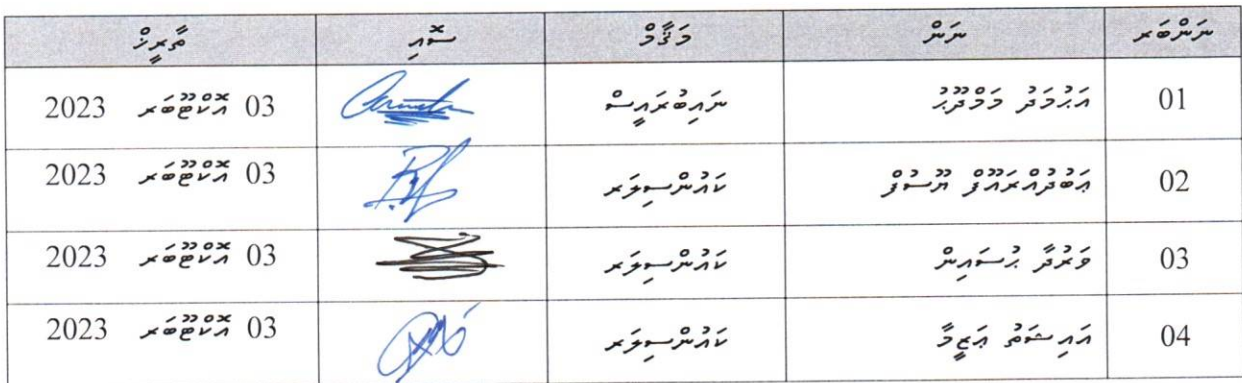 ނަންބަރ ނަން މަޤާމް ސޮއި ތާރީޚް
01 އަޙުމަދު މަމްދޫޙު ނައިބުރައީސް 03 އޮކްޓޫބަރ 2023
02 ޢަބުދުއްރައޫފް ޔޫސުފް ކައުންސިލަރ 03 އޮކްޓޫބަރ 2023
03 ވަރުދާ ޙުސައިން ކައުންސިލަރ 03 އޮކްޓޫބަރ 2023
04 އައިޝަތު ޢަޒީމާ ކައުންސިލަރ 03 އޮކްޓޫބަރ 2023